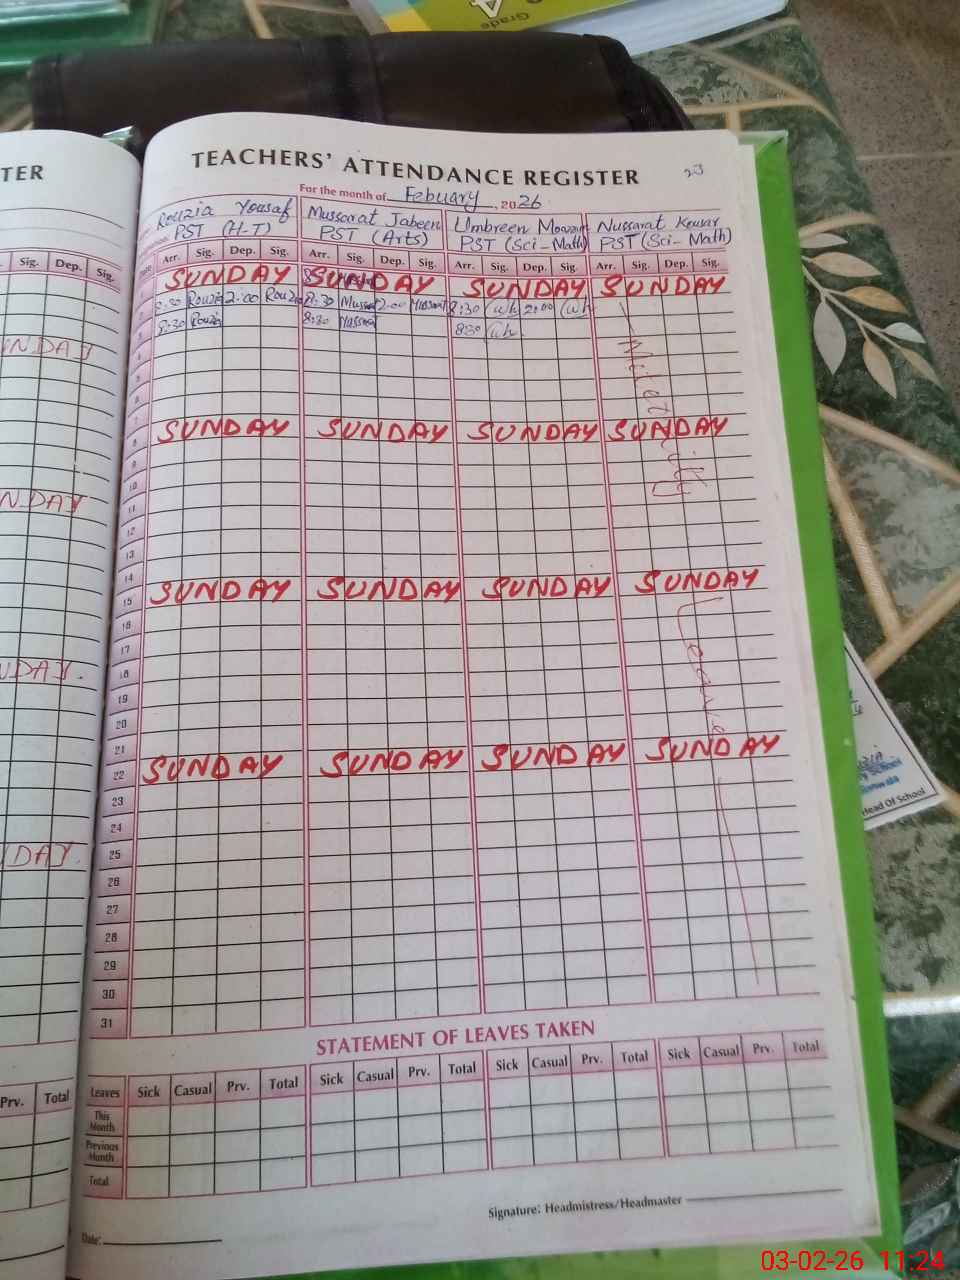 Grade
TER
TEACHERS' ATTENDANCE REGISTER
23
For the month of Febuary, 2026
Rouzia Yousaf Mussarat Jabeen Umbreen Nussarat Kousar
PST (H-T) PST (Arts) PST (Sci-Math) PST (Sci-Math)
Sig. Dep. Sig.
Date Arr. Sig. Dep. Sig. Arr. Sig. Dep. Sig. Arr. Sig. Dep. Sig. Arr. Sig. Dep. Sig.
1 SUNDAY SUNDAY SUNDAY SUNDAY
2 8:30 Rouzia 2:00 Rouzia 8:30 Mussarat 2:00 Mussarat 8:30 2:00
3 8:30 Rouzia 8:30 Mussarat 8:30
4
5
6
7
8 SUNDAY SUNDAY SUNDAY SUNDAY
9
10
11
12
13
14
15 SUNDAY SUNDAY SUNDAY SUNDAY
16
17
18
19
20
21
22 SUNDAY SUNDAY SUNDAY SUNDAY
23
24
25
26
27
28
29
30
31
Leave
UNDAY
NDAY
NDAY.
DAY.
STATEMENT OF LEAVES TAKEN
Prv. Total
Leaves Sick Casual Prv. Total Sick Casual Prv. Total Sick Casual Prv. Total Sick Casual Prv. Total
This Month
Previous Month
Total
Signature: Headmistress/Headmaster
Date:
Head Of School
03-02-26 11:24